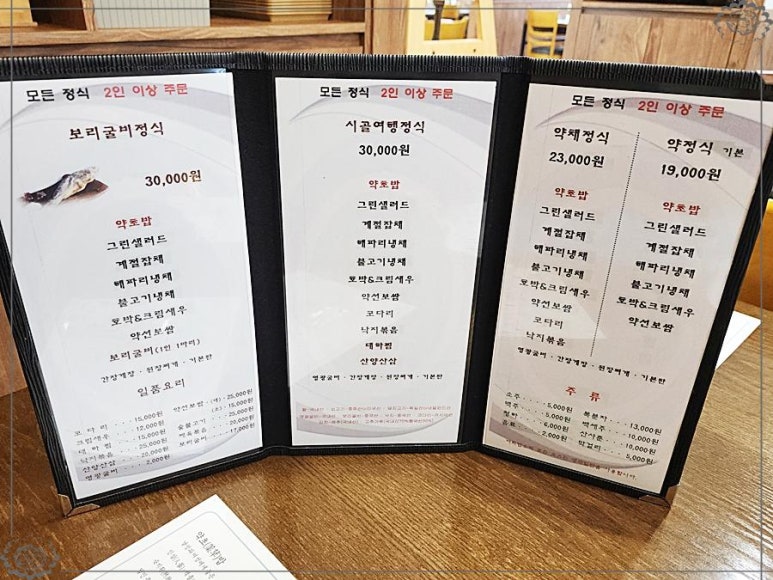 모든 정식 2인 이상 주문
보리굴비정식
30,000원
약초밥
그린샐러드
계절잡채
해파리냉채
불고기냉채
호박&크림새우
약선보쌈
보리굴비(1인 1마리)
간장게장 · 된장찌개 · 기본찬
일품요리
코다리 15,000원
크림새우 12,000원
대하찜 15,000원
낙지볶음 25,000원
산양산삼
영광굴비 2,000원
약선보쌈 (대) 25,000원
(소) 15,000원
숯불고기
제육볶음 20,000원
보리굴비 17,000원
모든 정식 2인 이상 주문
시골여행정식
30,000원
약초밥
그린샐러드
계절잡채
해파리냉채
불고기냉채
호박&크림새우
약선보쌈
코다리
낙지볶음
대하찜
산양산삼
영광굴비 · 간장게장 · 된장찌개 · 기본찬
모든 정식 2인 이상 주문
약채정식
23,000원
약초밥
그린샐러드
계절잡채
해파리냉채
불고기냉채
호박&크림새우
약선보쌈
코다리
낙지볶음
약정식 기본
19,000원
약초밥
그린샐러드
계절잡채
해파리냉채
불고기냉채
호박&크림새우
약선보쌈
영광굴비 · 간장게장 · 된장찌개 · 기본찬
주 류
소주 5,000원
맥주 5,000원
청하 6,000원
음료 2,000원
복분자 13,000원
백세주 10,000원
산사춘 10,000원
막걸리 5,000원
약초(꽃)밥